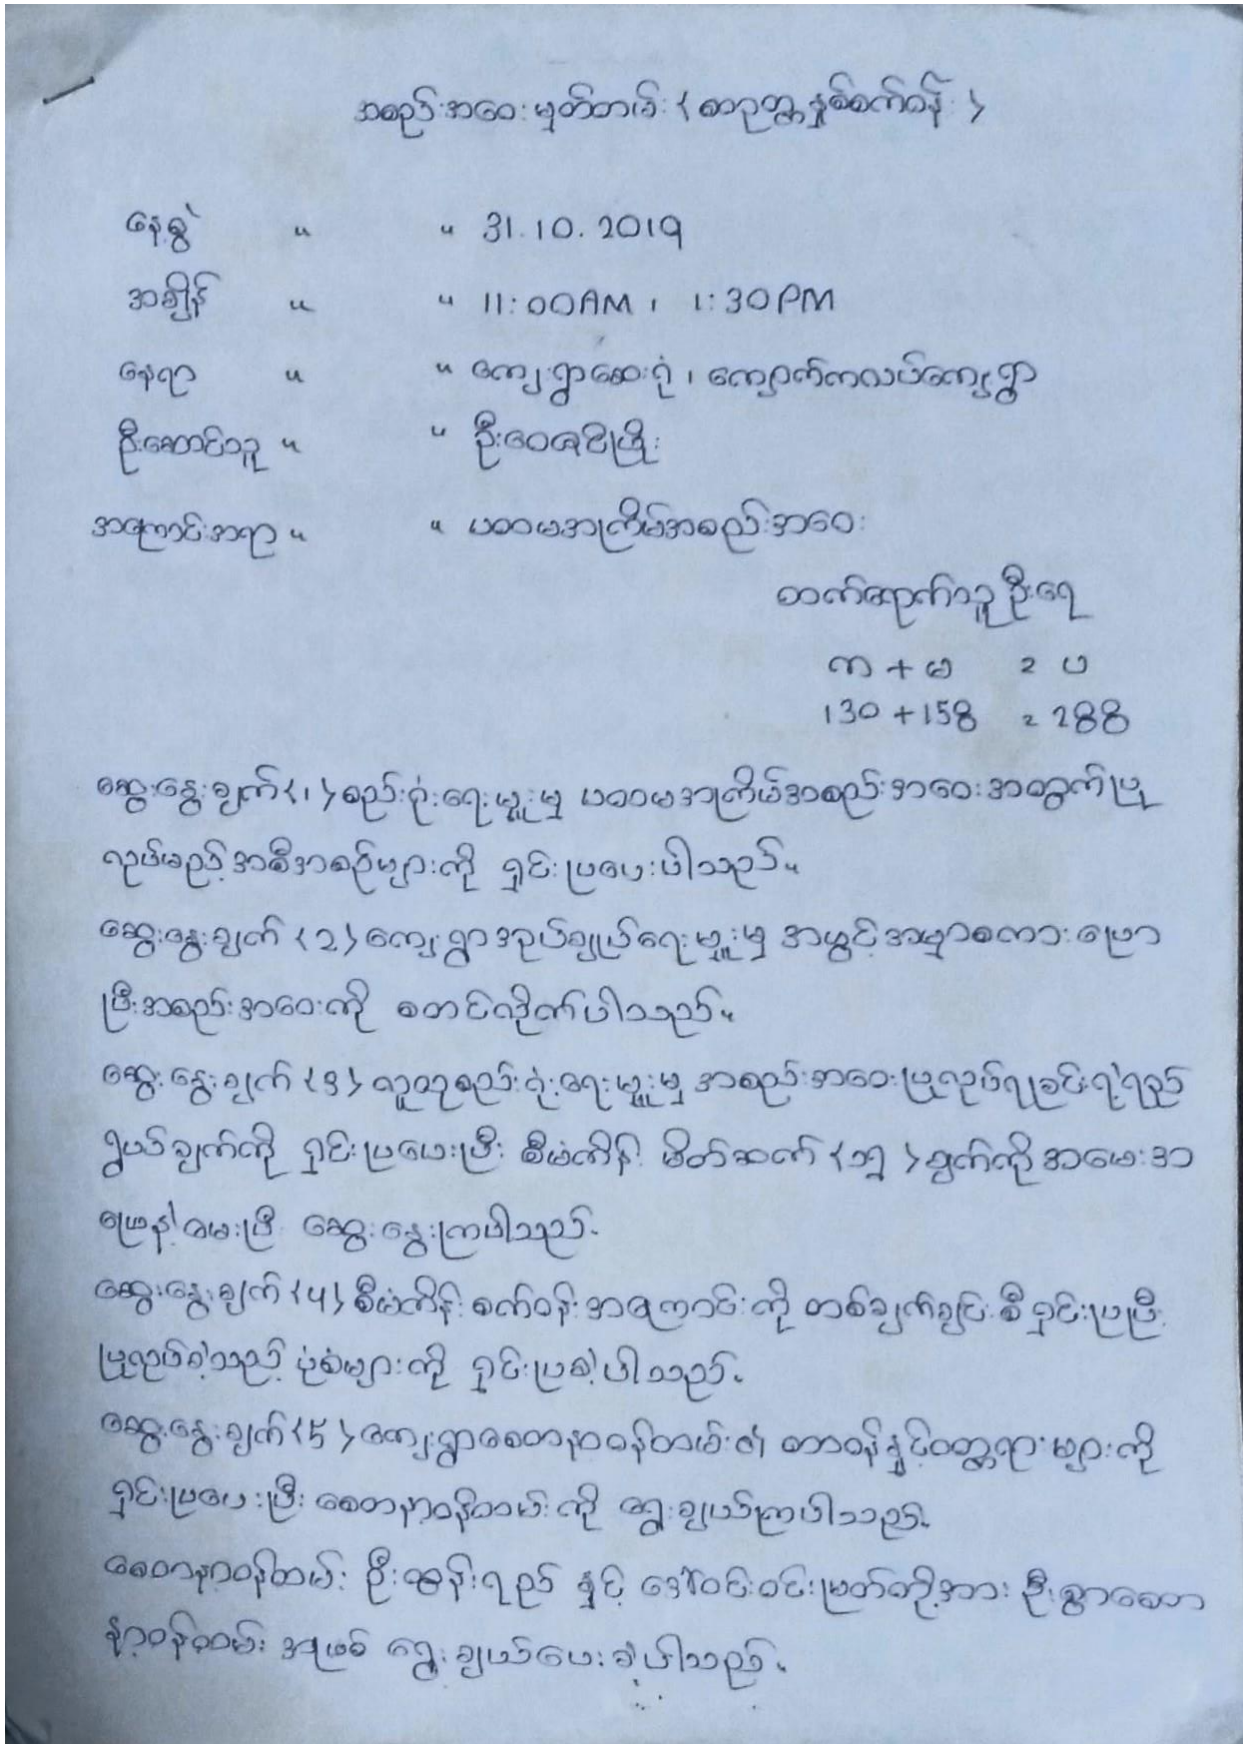 အစည်းအဝေးမှတ်တမ်း (စာဥတ္တနှစ်စက်ဝန်း)
နေ့စွဲ " " 31.10.2019
အချိန် " " 11:00AM ၊ 1:30PM
နေရာ " " ကျေးရွာဆေးရုံ ၊ ကျောက်ကလပ်ကျေးရွာ
ဦးဆောင်သူ " " ဦးဝေဇင်ဖြိုး
အကြောင်းအရာ " " ပထမအကြိမ်အစည်းအဝေး
တက်ရောက်သူဦးရေ
ကျ + မ = ပ
130 + 158 = 288
ဆွေးနွေးချက် (၁) စည်းရုံးရေးမှူးမှ ပထမအကြိမ်အစည်းအဝေးအတွက်ပြု
လုပ်မည့်အစီအစဉ်များကို ရှင်းပြပေးပါသည်။
ဆွေးနွေးချက် (2) ကျေးရွာအုပ်ချုပ်ရေးမှူးမှ အဖွင့်အမှာစကားပြော
ပြီးအစည်းအဝေးကို စတင်လိုက်ပါသည်။
ဆွေးနွေးချက် (3) လူထုစည်းရုံးရေးမှူးမှ အစည်းအဝေးပြုလုပ်ရခြင်းရဲ့ရည်
ရွယ်ချက်ကို ရှင်းပြပေးပြီး စီမံကိန်း မိတ်ဆက် (၁၅) ချက်ကို အမေးအ
ဖြေနဲ့ မေးပြီး ဆွေးနွေးကြပါသည်။
ဆွေးနွေးချက် (4) စီမံကိန်း စက်ဝန်းအကြောင်းကို တစ်ချက်ချင်းစီ ရှင်းပြပြီး
ပြုလုပ်ခဲ့သည့် ပုံစံများကို ရှင်းပြခဲ့ပါသည်။
ဆွေးနွေးချက် (5) ကျေးရွာစေတနာ့ဝန်ထမ်း၏ တာဝန်နှင့်ဝတ္တရားများကို
ရှင်းပြပေးပြီး စေတနာ့ဝန်ထမ်းကို ရွေးချယ်ကြပါသည်။
စေတနာ့ဝန်ထမ်း ဦးထွန်းရည် နှင့် ဒေါ်ဝင်းဝင်းမြတ်တို့အား ဦးစွာစေတ
နာ့ဝန်ထမ်း အဖြစ် ရွေးချယ်ပေးခဲ့ပါသည်။